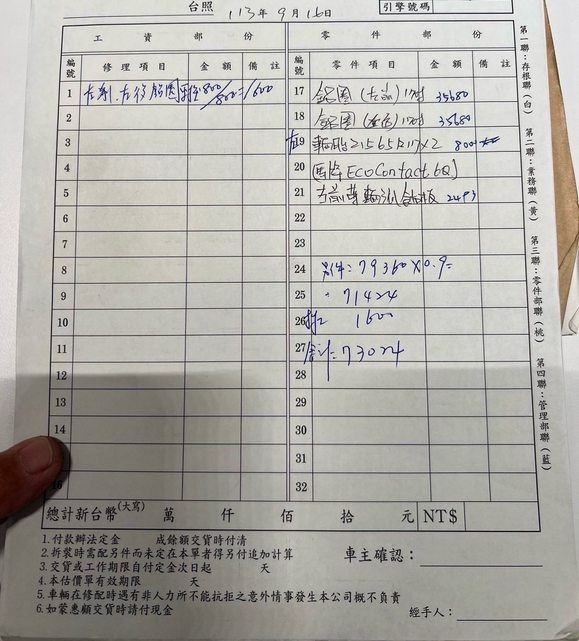 台照 113年9月16日
引擎號碼
工資部份
零件部份
編號 修理項目 金額 備註
編號 零件項目 金額 備註
1 800/800=1600
2
3
4
5
6
7
8
9
10
11
12
13
14
16
17 鋁圈(左前)17吋 35680
18 鋁圈 17吋 35680
左19 輪胎215 65R17×2 800
20 馬牌EcoContact 6Q]
21 左前 輪 板 2493
22
23
24 另件:79360×0.9=
25 71424
26 1600
27 合計:73024
28
29
30
31
32
總計新台幣(大寫) 萬 仟 佰 拾 元 NT$
1.付款辦法定金 成餘額交貨時付清
2.拆裝時需配另件而未定在本單者得另付追加計算
3.交貨或工作期限自付定金次日起 天
4.本估價單有效期限 天
5.車輛在修配時遇有非人力所不能抗拒之意外情事發生本公司概不負責
6.如蒙惠顧交貨時請付現金
車主確認:
經手人:
第一聯:存根聯(白)
第二聯:業務聯(黃)
第三聯:零件部聯(桃)
第四聯:管理部聯(藍)